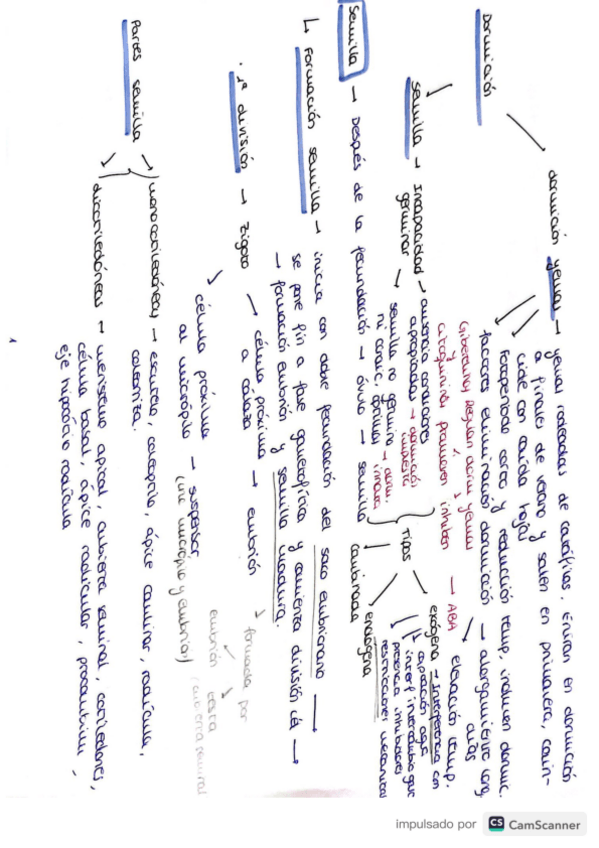 Dormición
dormición yemas → yemas rodeadas de catáfilas. Entran en dormición
a finales de verano y salen en primavera, coin-
cide con caída hojas
Fotoperiodo corto y reducción temp. inducen dormic.
factores eliminación dormición → alargamiento long.
días
elevación temp.
Giberelinas Regulan dorm. yemas
y
citoquininas promueven inhiben → ABA
semilla → Incapacidad germinar → ausencia condiciones
apropiadas → dormición
impuesta
semilla no germina → dorm.
ni condic. óptimas innata
Tipos
exógena → Interferencia con
captación agua
interf intercambio gas
presencia inhibidores
restricciones mecánicas
endógena
combinada
Semilla → Después de la fecundación → óvulo → semilla
↳ Formación semilla → inicia con doble fecundación del saco embrionario →
se pone fin a fase gametofítica y comienza división cél →
→ formación embrión y semilla madura.
· 1ª división → zigoto → célula próxima → embrión
a cálaza
formada por
embrión testa
(cubierta seminal)
célula próxima → suspensor
al micrópilo (une micrópilo y embrión)
Partes semilla
monocotiledóneas → escutelo, coleoptilo, ápice caulinar, radícula,
coleorriza.
dicotiledóneas → meristemo apical, cubierta seminal, cotiledones,
célula basal, ápice radicular, procambium,
eje hipocótilo radícula
impulsado por CS CamScanner